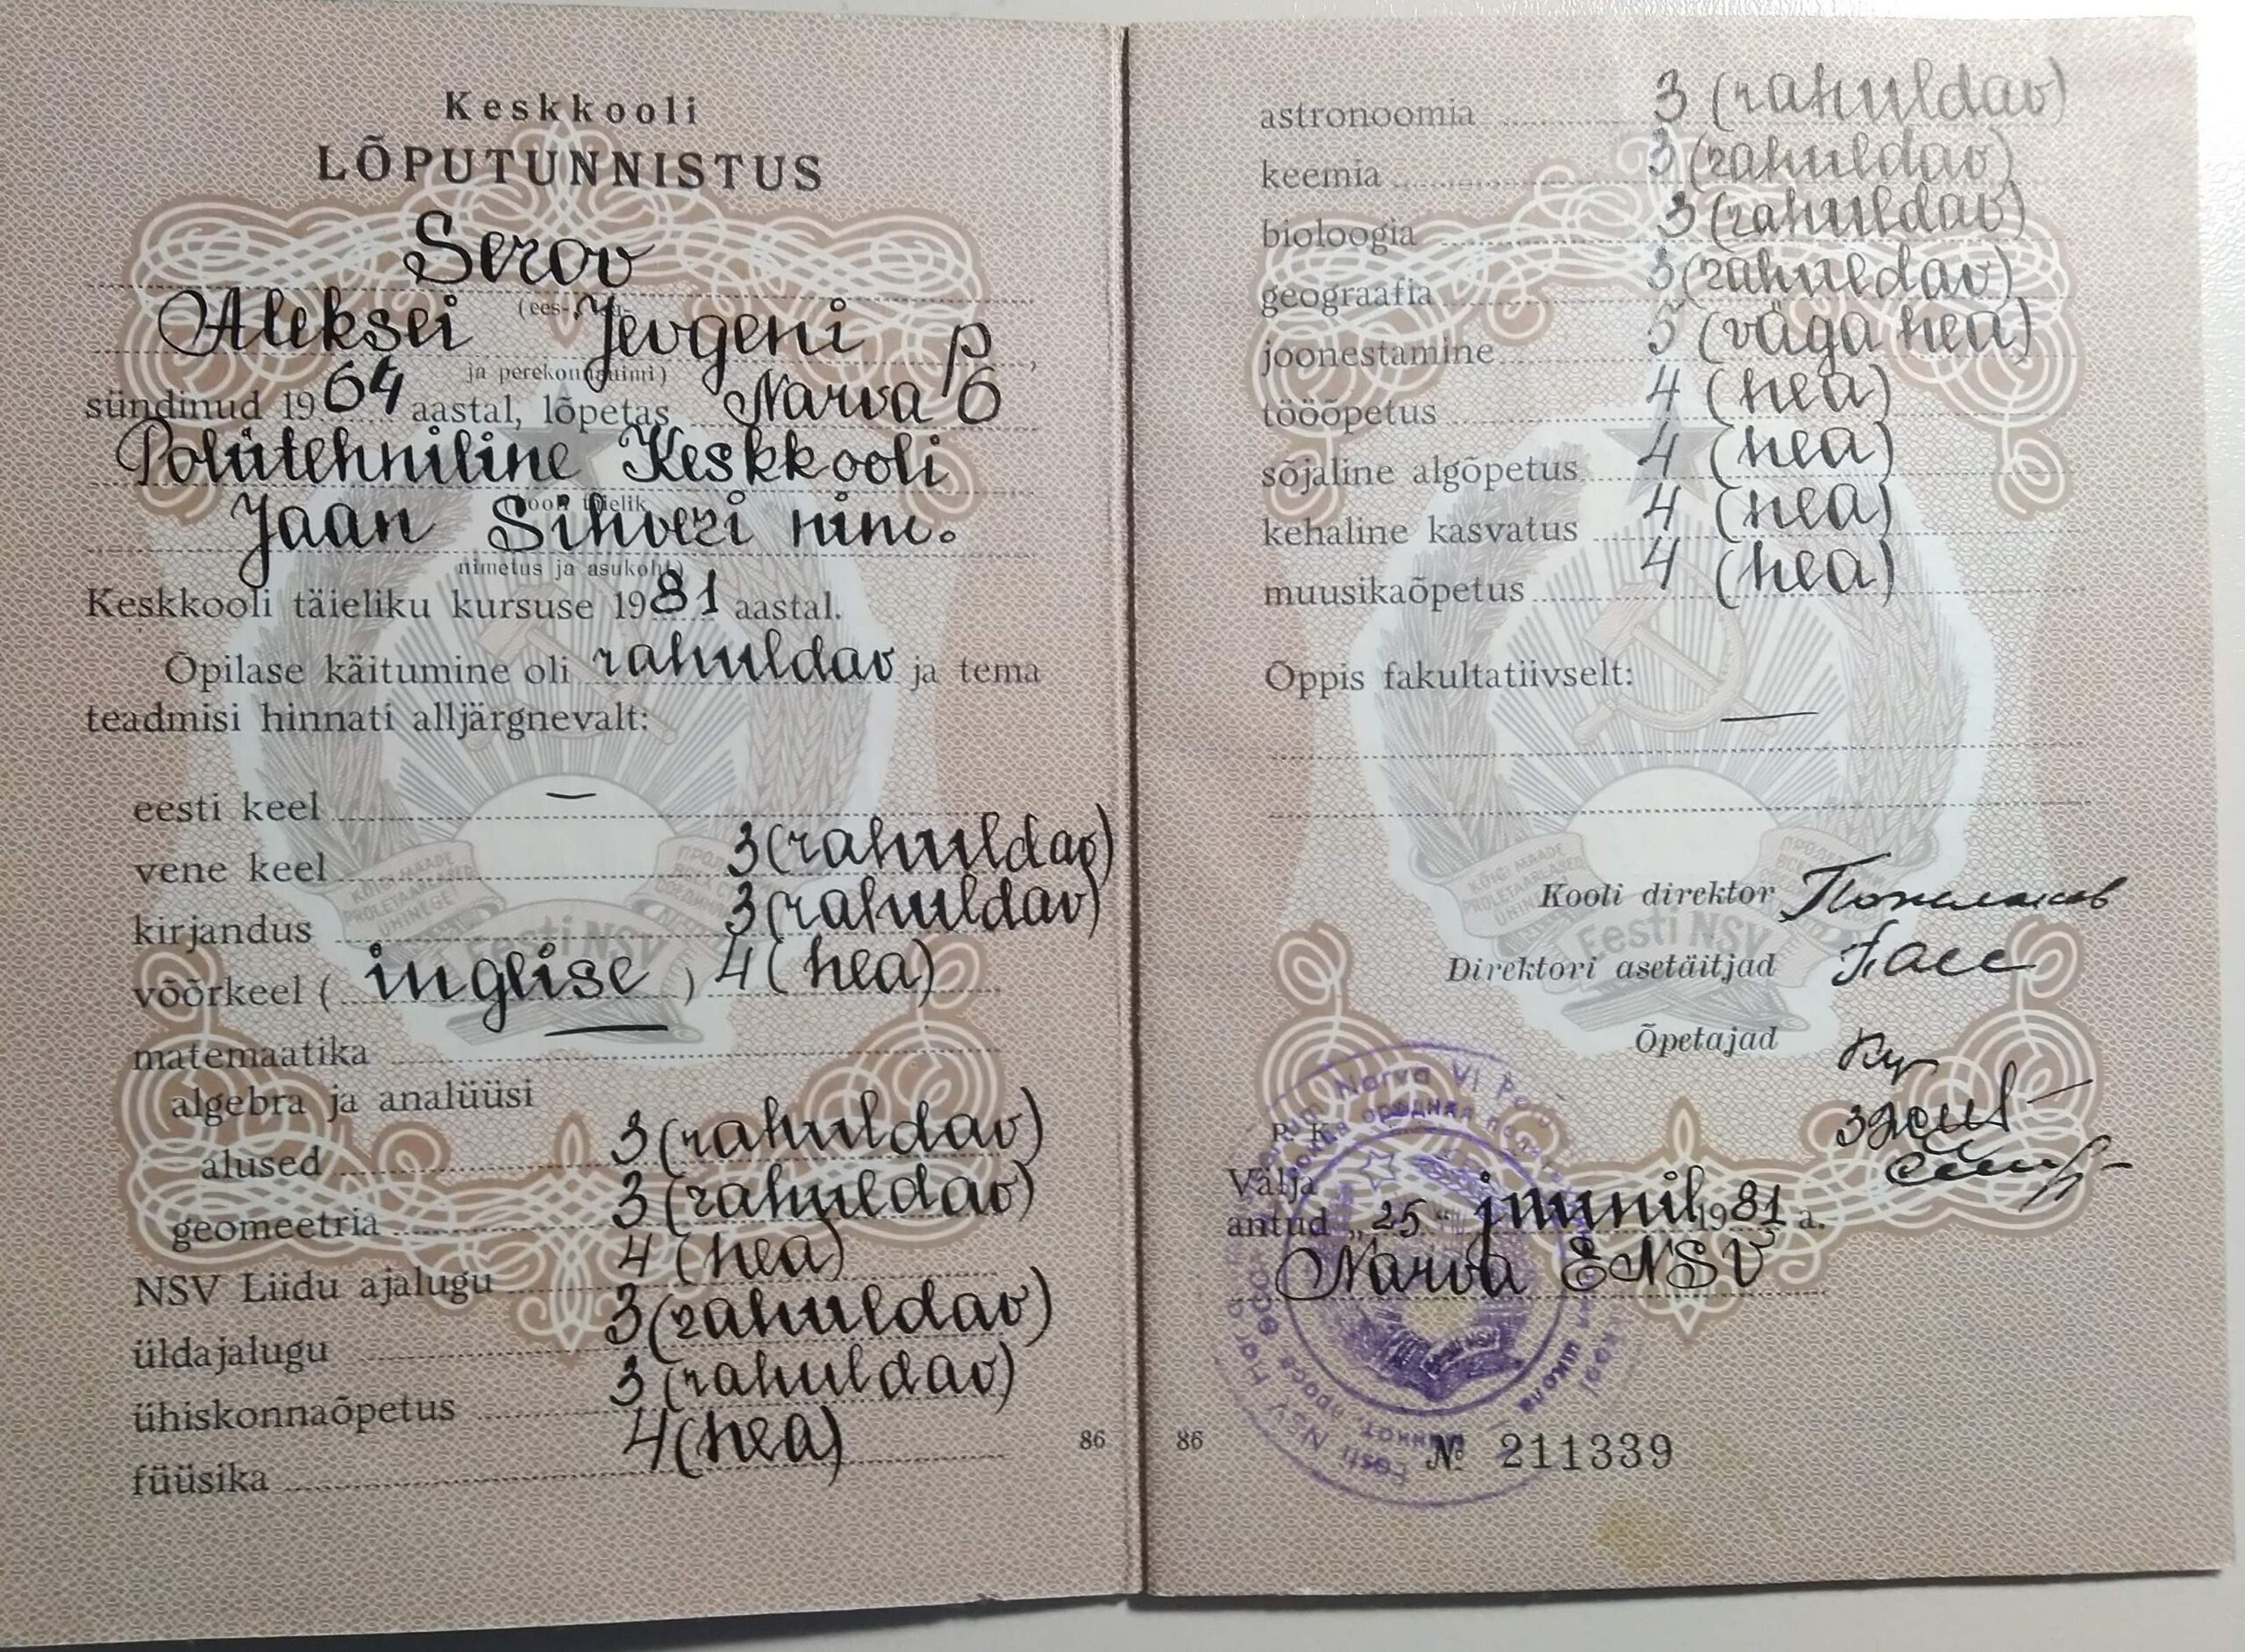 Keskkooli
LÕPUTUNNISTUS
Serov
(ees-,
Aleksei Jevgeni p
ja perekonnanimi)
sündinud 1964 aastal, lõpetas Narva 6
Polütehniline Keskkooli
Jaan Sihveri nim.
nimetus ja asukoht)
Keskkooli täieliku kursuse 1981 aastal.
Õpilase käitumine oli rahuldav ja tema
teadmisi hinnati alljärgnevalt:
eesti keel —
vene keel 3 (rahuldav)
kirjandus 3 (rahuldav)
võõrkeel (inglise) 4 (hea)
matemaatika —
algebra ja analüüsi
alused 3 (rahuldav)
geomeetria 3 (rahuldav)
NSV Liidu ajalugu 4 (hea)
üldajalugu 3 (rahuldav)
ühiskonnaõpetus 3 (rahuldav)
füüsika 4 (hea)
86
astronoomia 3 (rahuldav)
keemia 3 (rahuldav)
bioloogia 3 (rahuldav)
geograafia 3 (rahuldav)
joonestamine 5 (väga hea)
tööõpetus 4 (hea)
sõjaline algõpetus 4 (hea)
kehaline kasvatus 4 (hea)
muusikaõpetus 4 (hea)
Õppis fakultatiivselt:
—
Eesti NSV
Kooli direktor
Direktori asetäitjad
Õpetajad
Narva VI
Välja
antud „25" juunil 1981 a.
Narva ENSV
Eesti NSV
86
№ 211339